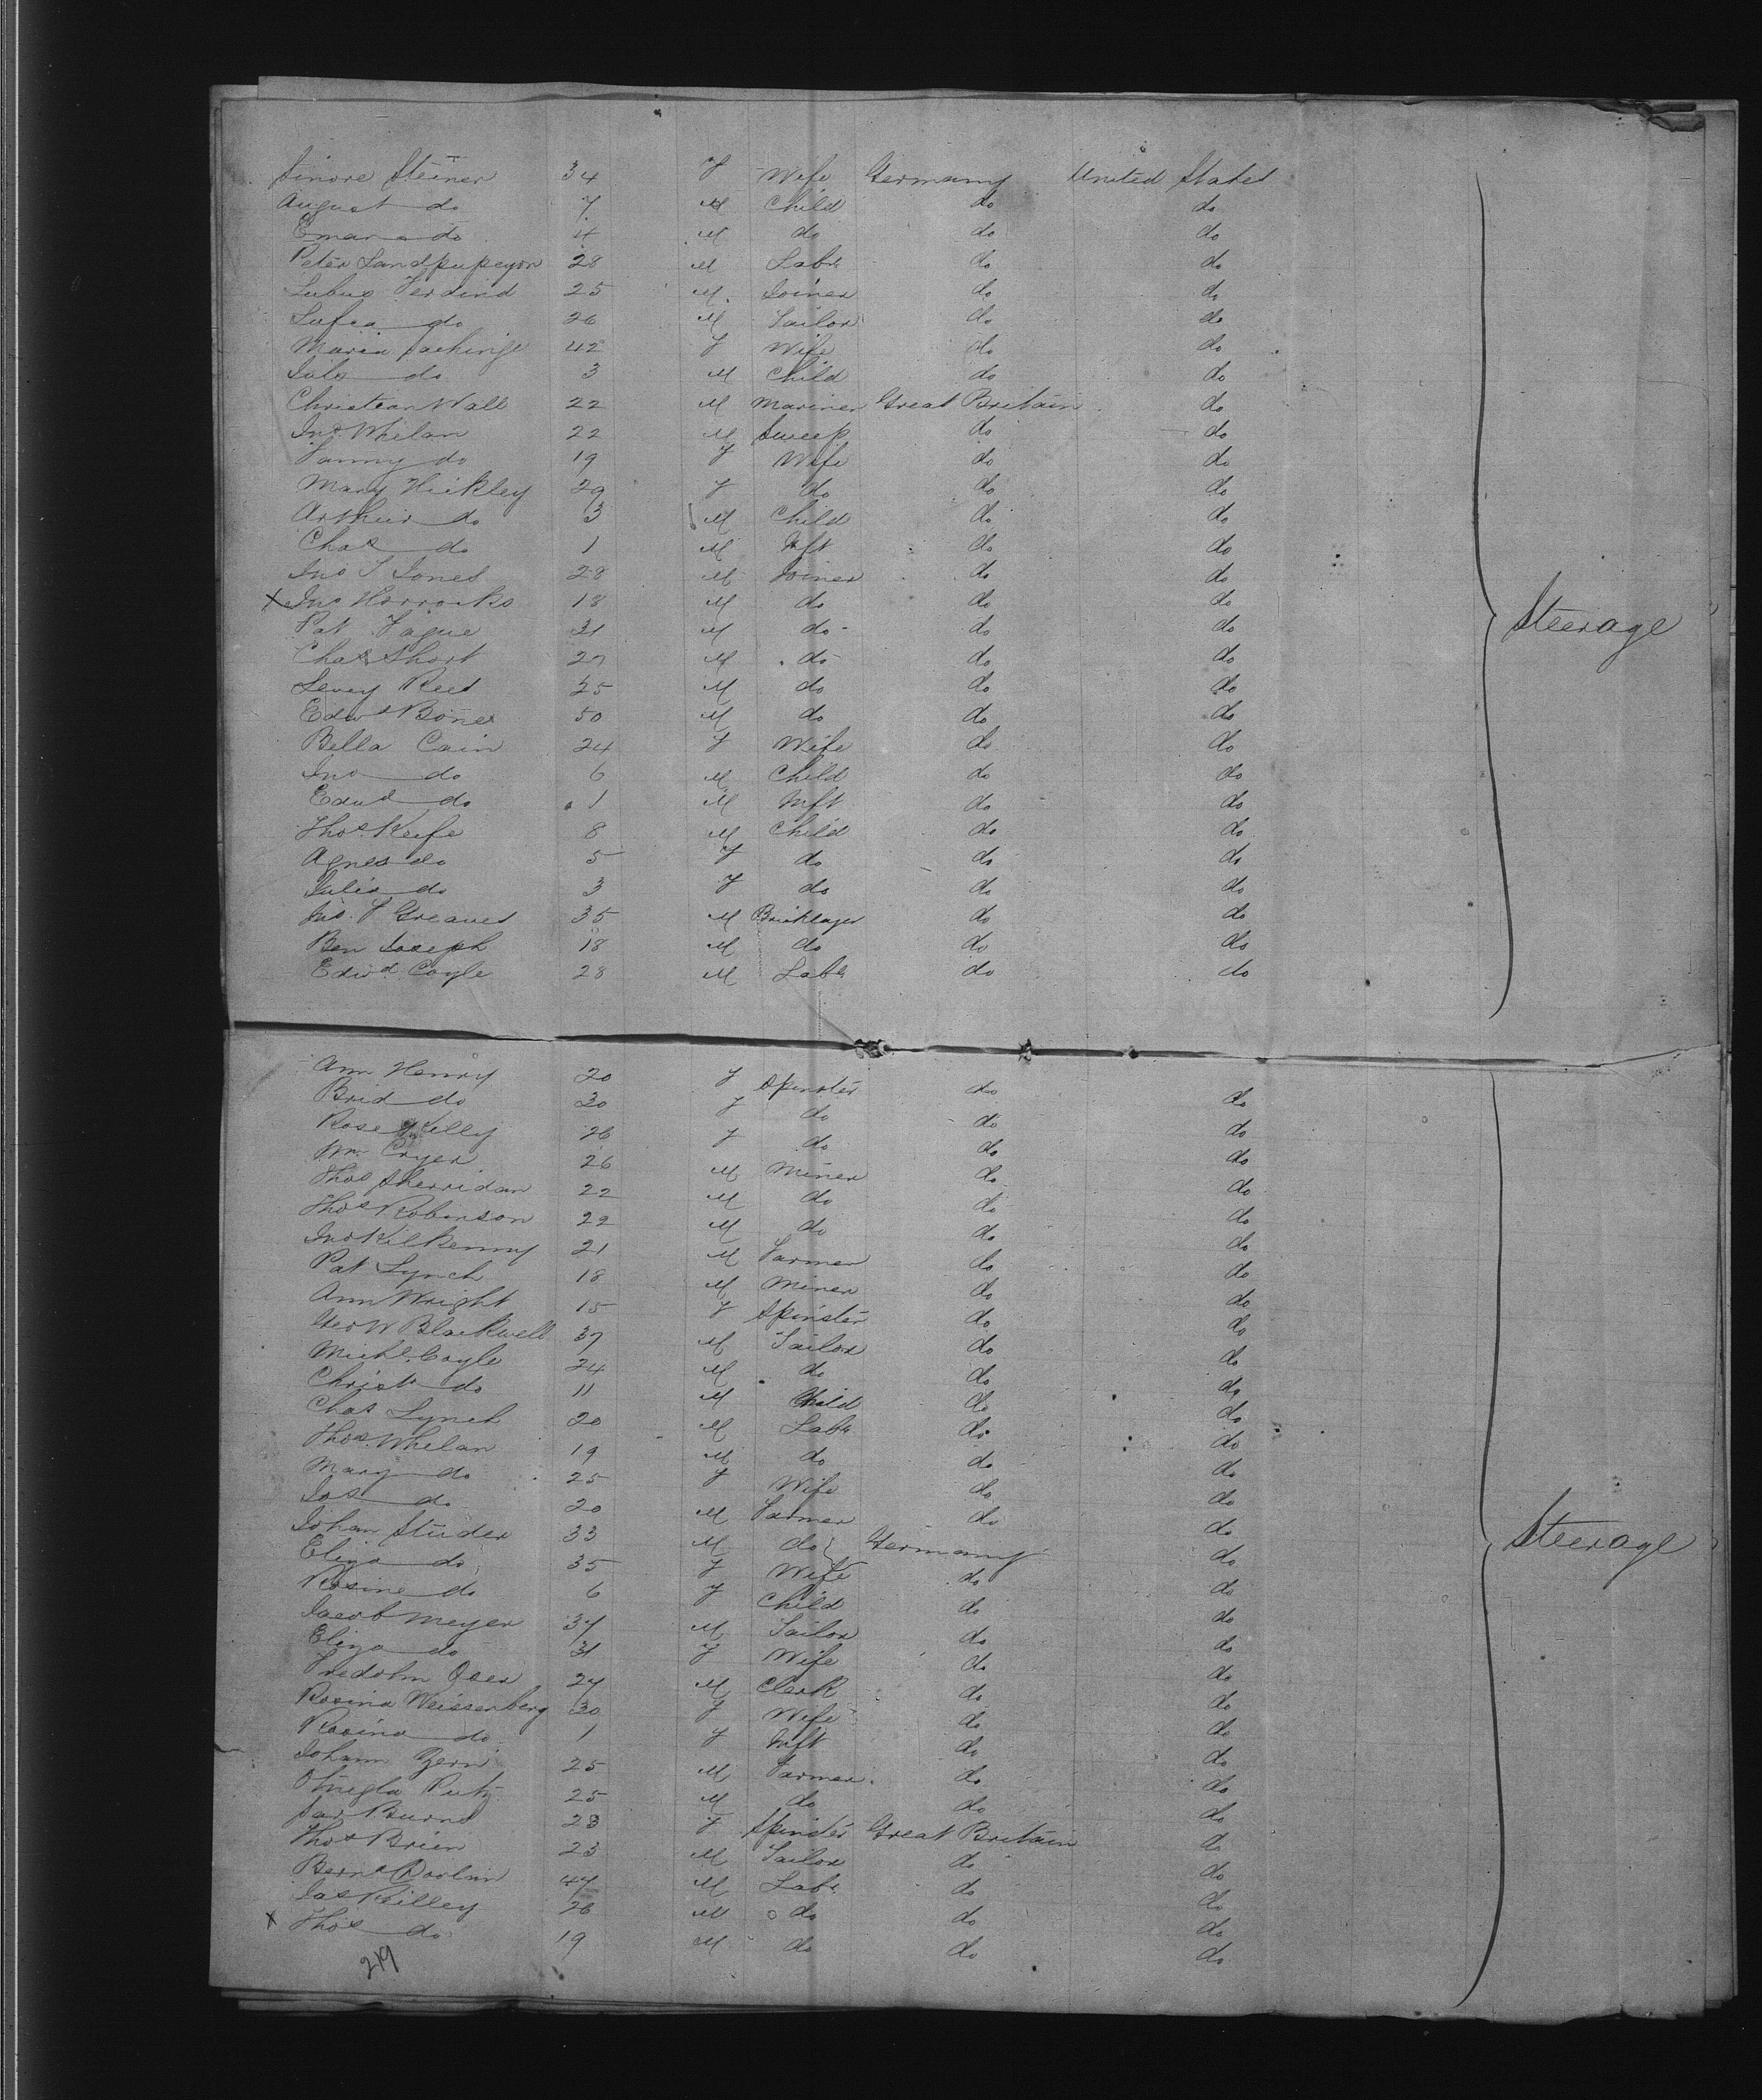 Sinore Steiner 34 F Wife Germany United States
August do 7 M Child do do
Emar do 4 M do do do
Peter 28 M Labr do do
Ferdind 25 M Joiner do do
do 26 M Tailor do do
Maria 42 F Wife do do
do 3 M Child do do
Christian Wall 22 M Mariner Great Britain do
Jno Whelan 22 M Sweep do do
Fanny do 19 F Wife do do
Mary Hickley 29 F do do do
Arthur do 3 M Child do do
Chas do 1 M Inft do do
Jno S Jones 28 M Joiner do do
x Jno Horrocks 18 M do do do
Pat Fague 31 M do do do
Chas Short 27 M do do do
Steerage
Levey Reed 25 M do do do
Edwd Bones 50 M do do do
Bella Cain 24 F Wife do do
Jno do 6 M Child do do
Edwd do 1 M Inft do do
Thos Keefe 8 M Child do do
Agnes do 5 F do do do
Julia do 3 F do do do
Jno. F Greaves 35 M Bricklayer do do
Ben Joseph 18 M do do do
Edwd Coyle 28 M Labr do do
Ann Henry 20 F Spinster do do
Brid do 30 F do do do
Rose Kelly 26 F do do do
Wm Cryer 26 M Miner do do
Thos Sherridan 22 M do do do
Thos Robinson 22 M do do do
Jno Kilkenny 21 M Farmer do do
Pat Lynch 18 M Miner do do
Ann Wright 15 F Spinster do do
Geo W Blackwell 37 M Tailor do do
Michl Coyle 24 M do do do
Christr do 11 M Child do do
Chas Lynch 20 M Labr do do
Thos Whelan 19 M do do do
Mary do 25 F Wife do do
Jos do 20 M Farmer do do
Johan Studer 33 M do Germany do
Steerage
Eliza do 35 F Wife do do
Rosine do 6 F Child do do
Jacob Meyer 37 M Tailor do do
Eliza do 31 F Wife do do
27 M Clerk do do
Rosina Weissenberg 30 F Wife do do
Rosina do 1 F Inft do do
Johann Zerni 25 M Farmer do do
Putz 25 M do do do
Sar Burns 23 F Spinster Great Britain do
Thos Brien 23 M Tailor do do
Bernd 47 M Labr do do
Jas Killey 26 M do do do
x Thos do 19 M do do do
219